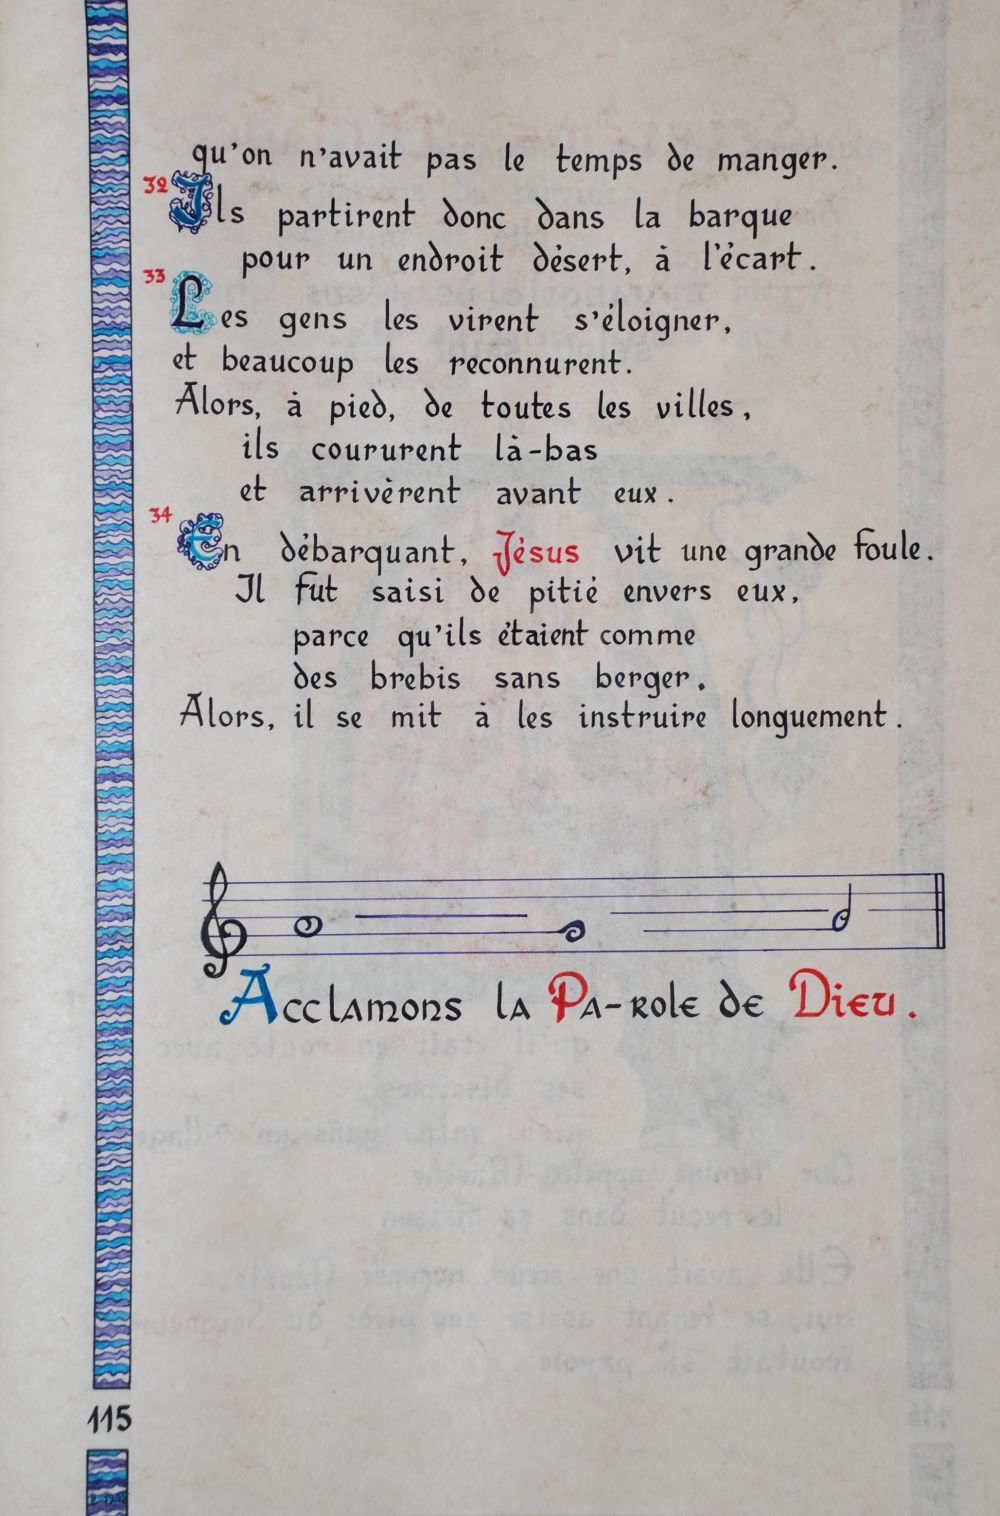 qu'on n'avait pas le temps de manger.
32 Ils partirent donc dans la barque
pour un endroit désert, à l'écart.
33 Les gens les virent s'éloigner,
et beaucoup les reconnurent.
Alors, à pied, de toutes les villes,
ils coururent là-bas
et arrivèrent avant eux.
34 En débarquant, Jésus vit une grande foule.
Il fut saisi de pitié envers eux,
parce qu'ils étaient comme
des brebis sans berger.
Alors, il se mit à les instruire longuement.
Acclamons la Pa-role de Dieu.
115